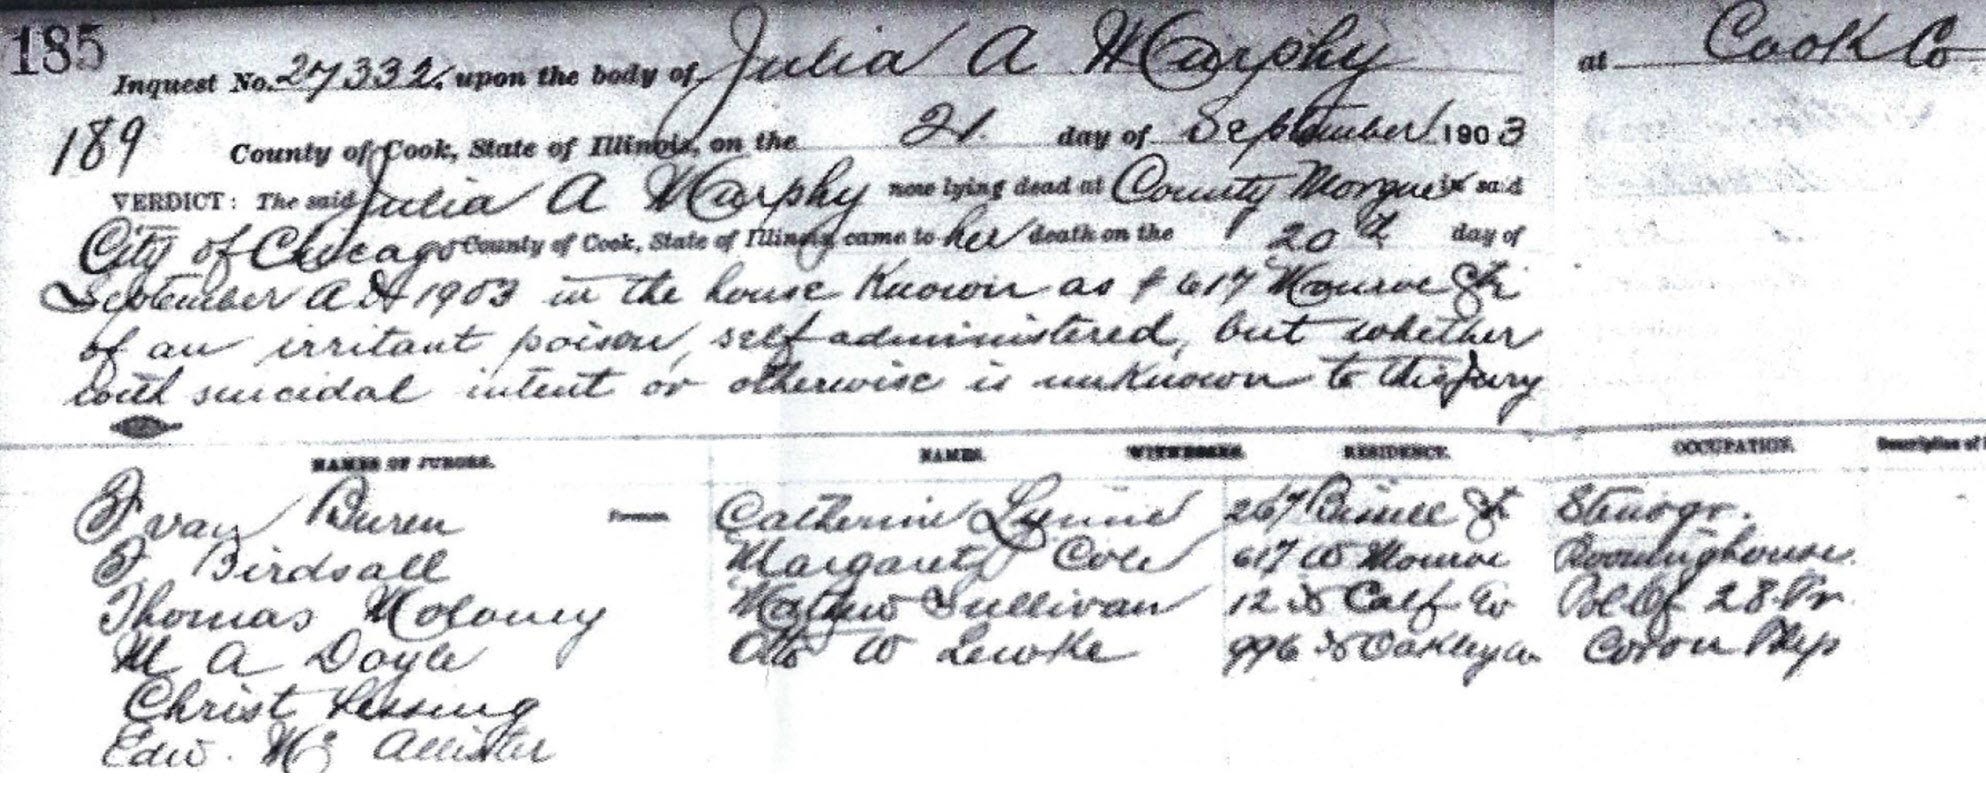 185
Inquest No. 27332. upon the body of Julia A McCarphy at Cook Co
189 County of Cook, State of Illinois, on the 21. day of September 1903
VERDICT: The said Julia A McCarphy now lying dead at County Morgue in said
City of Chicago County of Cook, State of Illinois, came to her death on the 20th day of
September A D 1903 in the house known as # 617 Monroe St.
of an irritant poison, self administered, but whether
with suicidal intent or otherwise is unknown to this Jury
NAMES OF JURORS. NAMES. WITNESSES. RESIDENCE. OCCUPATION. Description of
F van Buren — Catherine 267 St Stenogr.
F Birdsall Margaret Cole 617 W Monroe Roominghouse.
Thomas Moloney Mathew Sullivan 12 Calf Av Pol Of 28 Pr.
M A Doyle Otto W Lewke 996 N Oakley av Coron Phys
Christ Lessing
Edw. Mc Allister